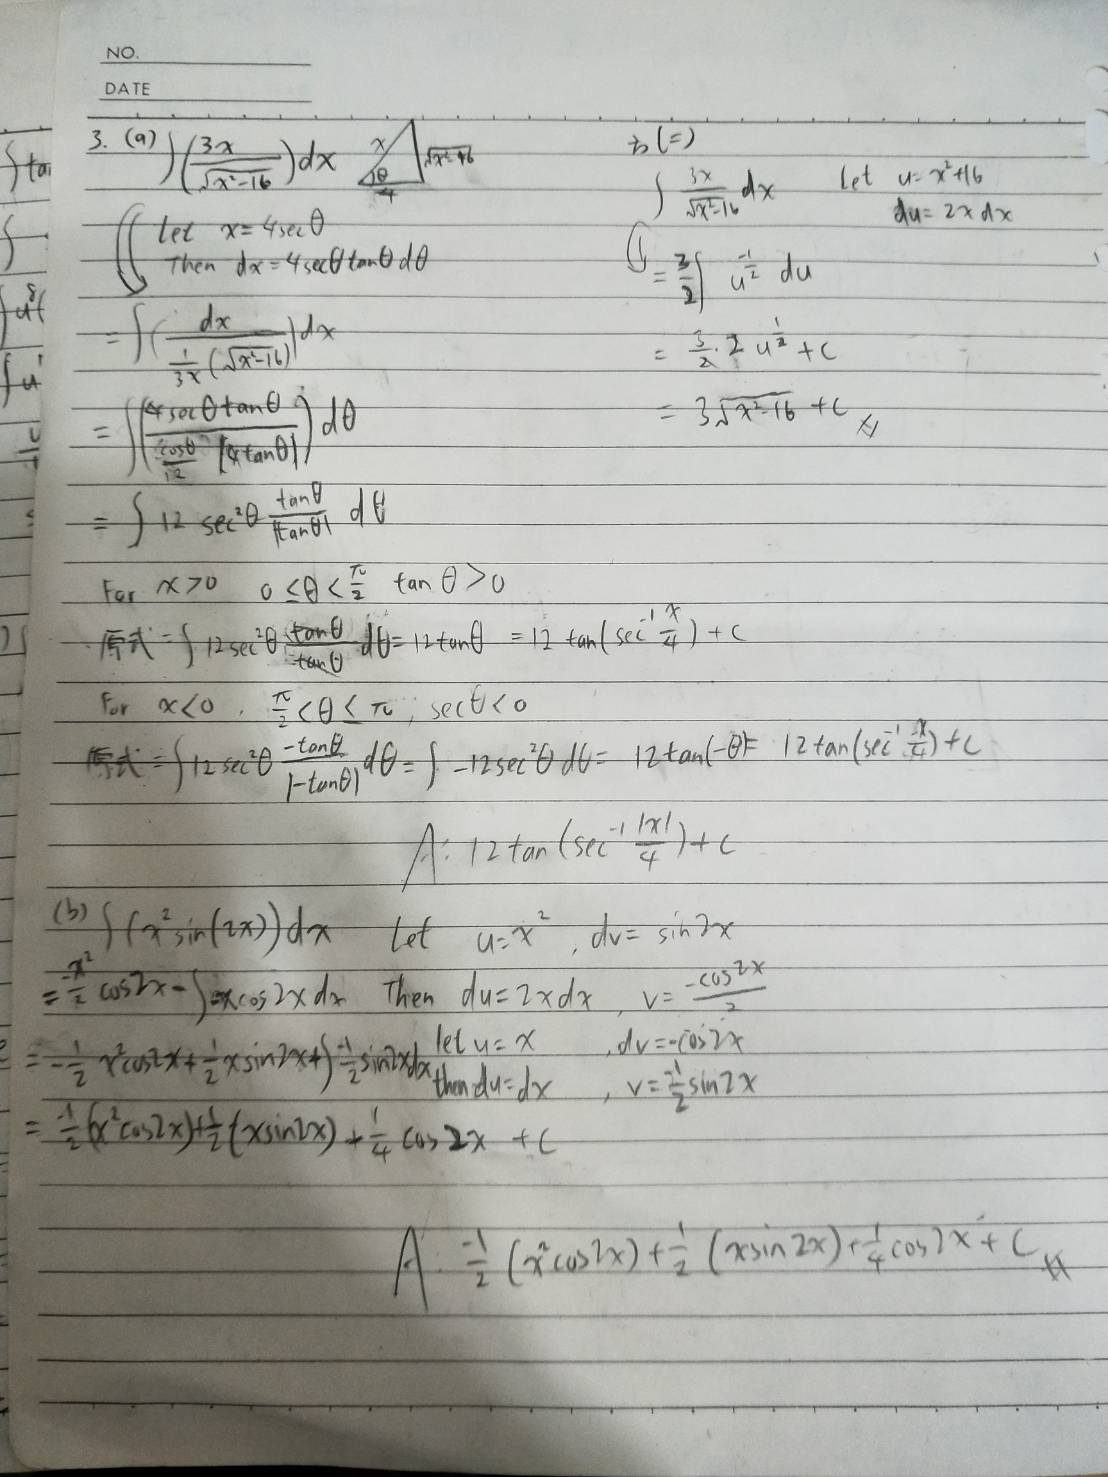 NO.
DATE
3. (a) ∫(3x/√(x²-16))dx x θ 4 √(x²-16)
Let x=4secθ
Then dx=4secθtanθdθ
=∫(dx/(1/3x (√(x²-16))))dx
=∫(4secθtanθ/(cosθ/12 |4tanθ|))dθ
=∫12 sec²θ tanθ/|tanθ| dθ
For x>0 0≤θ<π/2 tanθ>0
原式=∫12sec²θ tanθ/tanθ dθ=12tanθ =12 tan(sec⁻¹ x/4)+c
For x<0, π/2<θ≤π, secθ<0
原式=∫12sec²θ -tanθ/|-tanθ| dθ=∫-12sec²θdθ= 12tan(-θ)= 12tan(sec⁻¹ -x/4)+c
A: 12tan(sec⁻¹ |x|/4)+c
(二)
∫ 3x/√(x²-16) dx Let u=x²+16
du=2xdx
=3/2∫ u^(-1/2) du
= 3/2·2 u^(1/2) +c
= 3√(x²-16) +c
(b) ∫(x²sin(2x))dx Let u=x², dv=sin2x
=-x²/2 cos2x-∫-xcos2xdx Then du=2xdx, v=-cos2x/2
=-1/2 x²cos2x+1/2 xsin2x+∫-1/2 sin2xdx let u=x, dv=-cos2x
then du=dx, v=-1/2 sin2x
=-1/2(x²cos2x)+1/2(xsin2x)+1/4 cos2x +c
A: -1/2 (x²cos2x)+1/2 (xsin2x)+1/4 cos2x+C